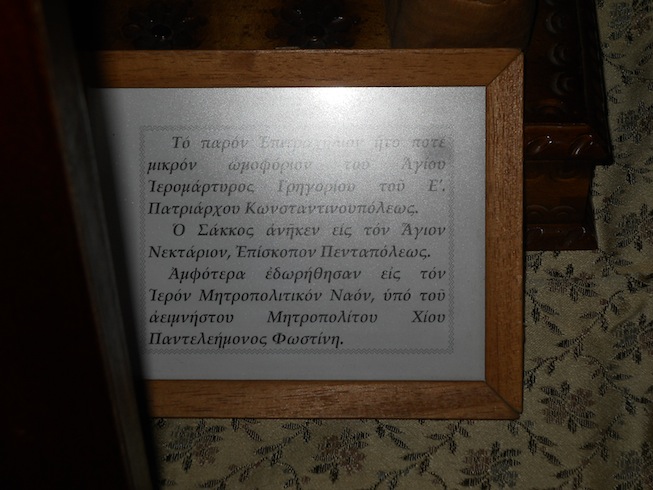 Τό παρόν Ἐπιτραχήλιον ἦτο ποτέ
μικρόν ὠμοφόριον τοῦ Ἁγίου
Ἱερομάρτυρος Γρηγορίου τοῦ Ε΄.
Πατριάρχου Κωνσταντινουπόλεως.
Ὁ Σάκκος ἀνῆκεν εἰς τόν Ἅγιον
Νεκτάριον, Ἐπίσκοπον Πενταπόλεως.
Ἀμφότερα ἐδωρήθησαν εἰς τόν
Ἱερόν Μητροπολιτικόν Ναόν, ὑπό τοῦ
ἀειμνήστου Μητροπολίτου Χίου
Παντελεήμονος Φωστίνη.